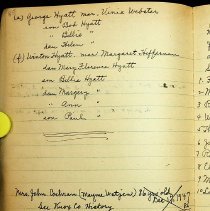 (e) George Hyatt mar. Venia Webster
son Bob Hyatt
" Billie "
dau Helen "
(f) Weston Hyatt mar. Margaret Heffernan
dau Mary Florence Hyatt
son Billie Hyatt
dau Margery "
" Ann "
son Paul "
Mrs. John Cochran (Wayne Watgens) 86 yrs old
Dec 1947
See Knox Co. History